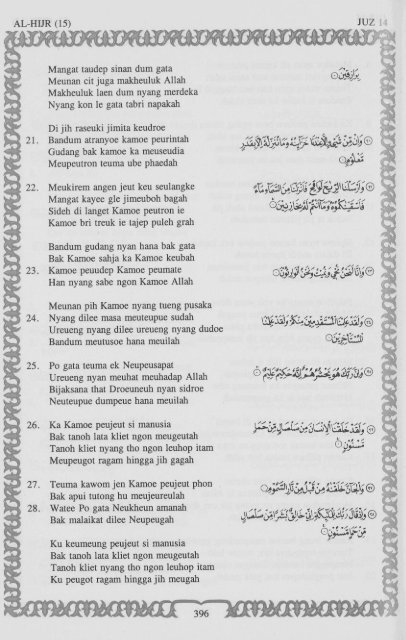 AL-HIJR (15) JUZ 14
Mangat taudep sinan dum gata
Meunan cit juga makheuluk Allah
Makheuluk laen dum nyang merdeka
Nyang kon le gata tabri napakah
بِرَازِقِينَ
Di jih raseuki jimita keudroe
21. Bandum atranyoe kamoe peurintah
Gudang bak kamoe ka meuseudia
Meupeutron teuma ube phaedah
وَإِنْ مِنْ شَيْءٍ إِلَّا عِنْدَنَا خَزَائِنُهُ وَمَا نُنَزِّلُهُ إِلَّا بِقَدَرٍ
مَعْلُومٍ
22. Meukirem angen jeut keu seulangke
Mangat kayee gle jimeuboh bagah
Sideh di langet Kamoe peutron ie
Kamoe bri treuk ie tajep puleh grah
وَأَرْسَلْنَا الرِّيَاحَ لَوَاقِحَ فَأَنْزَلْنَا مِنَ السَّمَاءِ مَاءً
فَأَسْقَيْنَاكُمُوهُ وَمَا أَنْتُمْ لَهُ بِخَازِنِينَ
Bandum gudang nyan hana bak gata
Bak Kamoe sahja ka Kamoe keubah
23. Kamoe peuudep Kamoe peumate
Han nyang sabe ngon Kamoe Allah
وَإِنَّا لَنَحْنُ نُحْيِي وَنُمِيتُ وَنَحْنُ الْوَارِثُونَ
Meunan pih Kamoe nyang tueng pusaka
24. Nyang dilee masa meuteupue sudah
Ureueng nyang dilee ureueng nyang dudoe
Bandum meutusoe hana meuilah
وَلَقَدْ عَلِمْنَا الْمُسْتَقْدِمِينَ مِنْكُمْ وَلَقَدْ عَلِمْنَا
الْمُسْتَأْخِرِينَ
25. Po gata teuma ek Neupeusapat
Ureueng nyan meuhat meuhadap Allah
Bijaksana that Droeuneuh nyan sidroe
Neuteupue dumpeue hana meuilah
وَإِنَّ رَبَّكَ هُوَ يَحْشُرُهُمْ إِنَّهُ حَكِيمٌ عَلِيمٌ
26. Ka Kamoe peujeut si manusia
Bak tanoh lata kliet ngon meugeutah
Tanoh kliet nyang tho ngon leuhop itam
Meupeugot ragam hingga jih gagah
وَلَقَدْ خَلَقْنَا الْإِنْسَانَ مِنْ صَلْصَالٍ مِنْ حَمَإٍ
مَسْنُونٍ
27. Teuma kawom jen Kamoe peujeut phon
Bak apui tutong hu meujeureulah
وَالْجَانَّ خَلَقْنَاهُ مِنْ قَبْلُ مِنْ نَارِ السَّمُومِ
28. Watee Po gata Neukheun amanah
Bak malaikat dilee Neupeugah
وَإِذْ قَالَ رَبُّكَ لِلْمَلَائِكَةِ إِنِّي خَالِقٌ بَشَرًا مِنْ صَلْصَالٍ
مِنْ حَمَإٍ مَسْنُونٍ
Ku keumeung peujeut si manusia
Bak tanoh lata kliet ngon meugeutah
Tanoh kliet nyang tho ngon leuhop itam
Ku peugot ragam hingga jih meugah
396